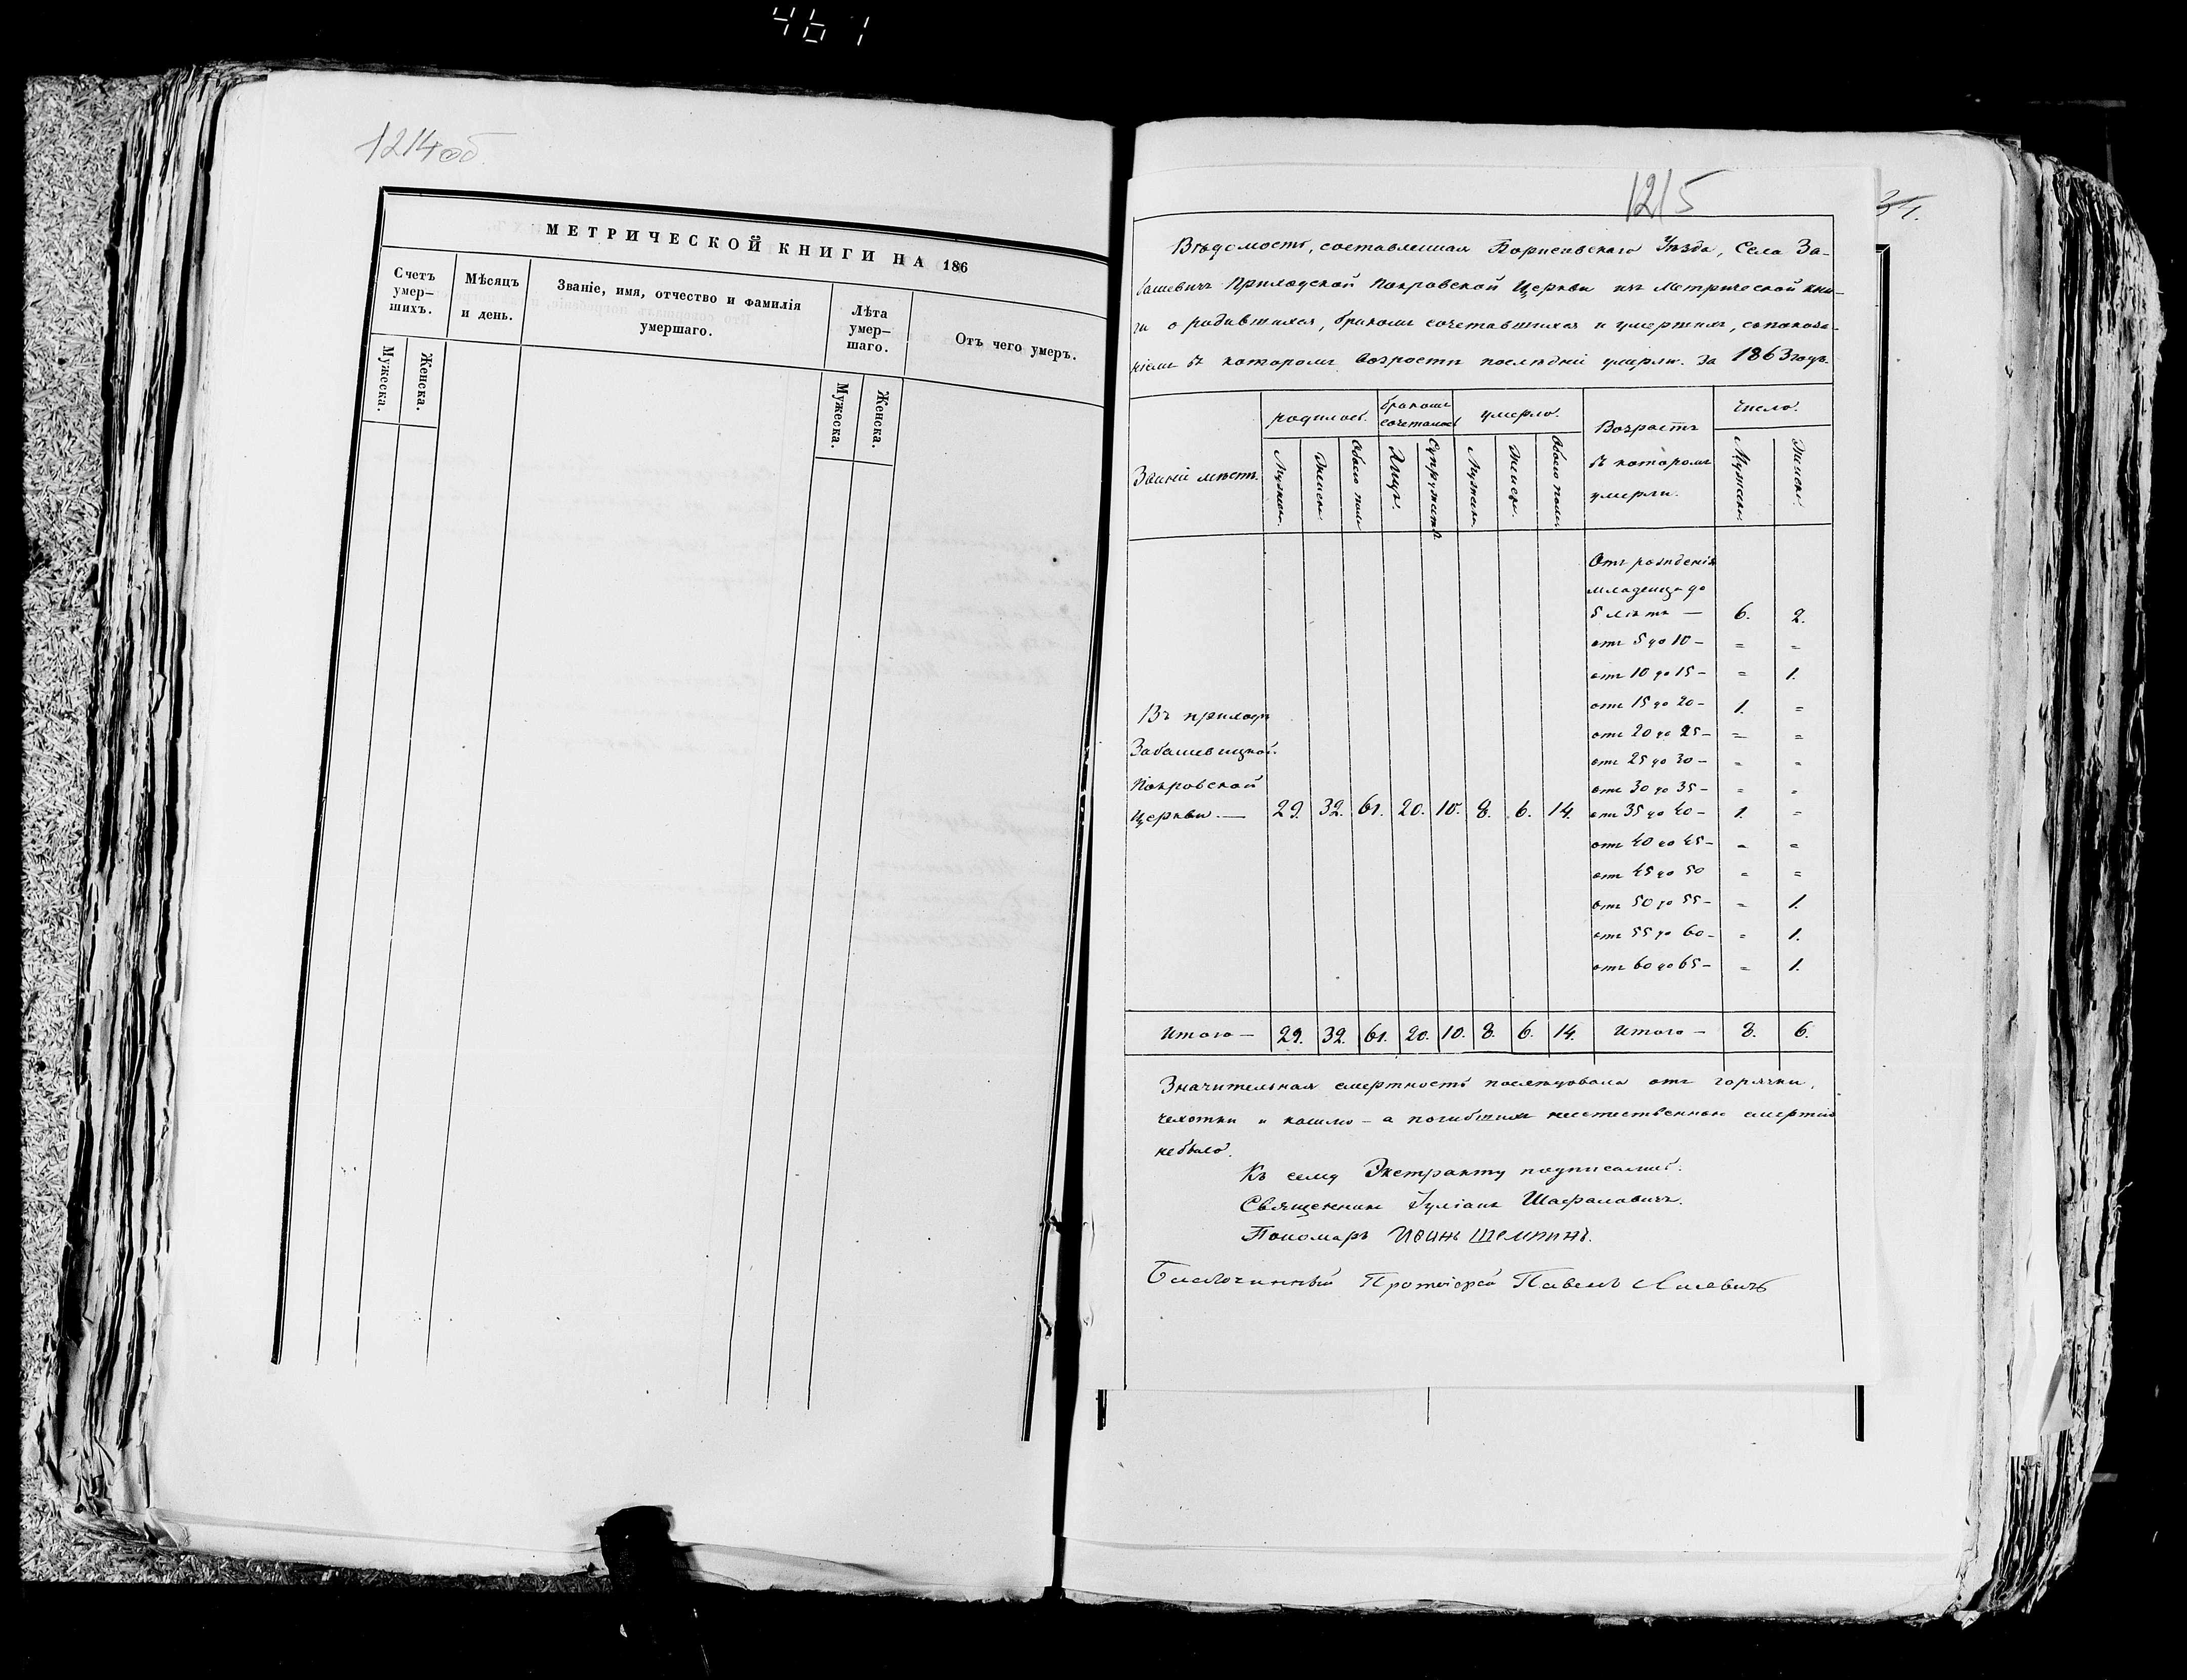 461
1214об.
МЕТРИЧЕСКОЙ КНИГИ НА 186
Счетъ умер–шихъ.
Мѣсяцъ и день.
Званіе, имя, отчество и фамилія умершаго.
Лѣта умер–шаго.
Отъ чего умеръ.
Мужеска.
Женска.
Мужеска.
Женска.
1215
Вѣдомость, составленная Борисовскаго Уѣзда, Села За-
башевичъ Приходской Покровской Церкви изъ Метрической кни-
ги о родившихся, бракомъ сочетавшихся и умершихъ, съ показа-
ніемъ въ которомъ возрастѣ послѣдніе умерли. За 1863 годъ.
Званіе мѣстъ.
родилось.
бракомъ сочеталось
умерло.
Возрастъ въ которомъ умерли.
Число.
Мужеска.
Женска.
Обоего пола
Лицъ.
Супружествъ.
Мужеска.
Женска.
Обоего пола
Мужеска.
Женска.
Отъ рожденія
младенца до
5 лѣтъ — 6. 2.
отъ 5 до 10 – = =
отъ 10 до 15 – = 1.
отъ 15 до 20 – 1. =
отъ 20 до 25 – = =
отъ 25 до 30 – = =
отъ 30 до 35 – = =
отъ 35 до 40 – 1. =
отъ 40 до 45 – = =
отъ 45 до 50 = =
отъ 50 до 55 – = 1.
отъ 55 до 60 – = 1.
отъ 60 до 65 – = 1.
Въ приходѣ
Забашевицкой
Покровской
Церкви. — 29. 32. 61. 20. 10. 8. 6. 14.
Итого — 29. 32. 61. 20. 10. 8. 6. 14. Итого — 8. 6.
Значительная смертность послѣдовала отъ горячки,
чахотки и кашлю – а погибшихъ неестественною смертію
небыло.
Къ сему Экстракту подписались:
Священникъ Іуліанъ Шафаловичъ.
Пономарь
Благочинный Протоіерей Павелъ